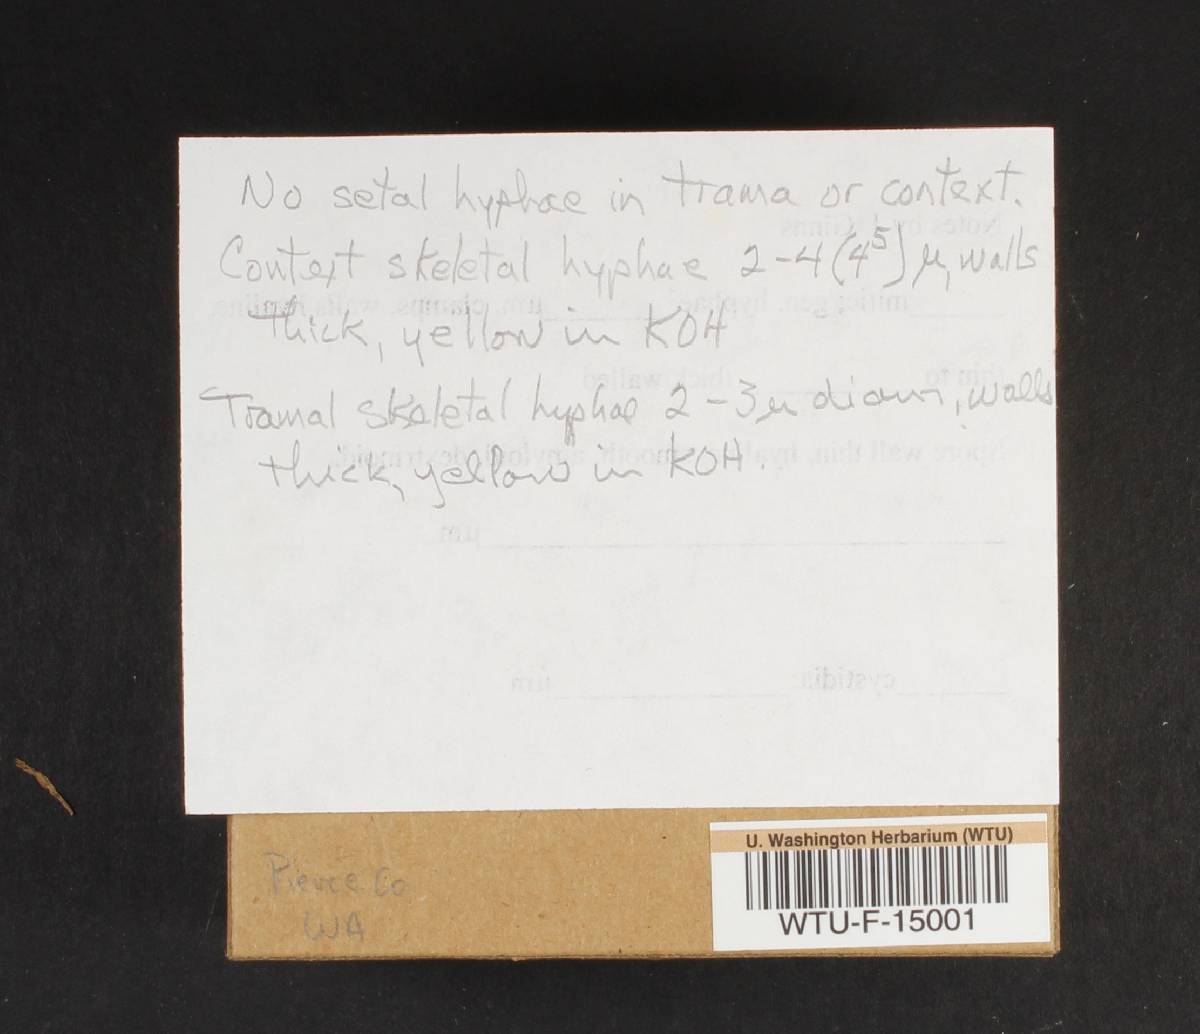 No setal hyphae in trama or context.
Context skeletal hyphae 2-4(4⁵) µ, walls
thick, yellow in KOH
Tramal skeletal hyphae 2-3µ diam, walls
thick, yellow in KOH.
Pierce Co
WA
U. Washington Herbarium (WTU)
WTU-F-15001